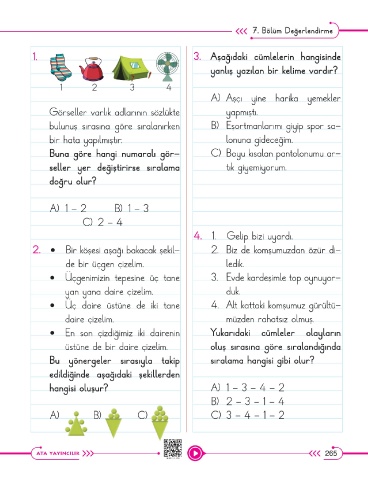 7. Bölüm Değerlendirme
1.
1 2 3 4
Görseller varlık adlarının sözlükte
bulunuş sırasına göre sıralanırken
bir hata yapılmıştır.
Buna göre hangi numaralı gör-
seller yer değiştirirse sıralama
doğru olur?
A) 1 – 2 B) 1 – 3
C) 2 – 4
2. • Bir köşesi aşağı bakacak şekil-
de bir üçgen çizelim.
• Üçgenimizin tepesine üç tane
yan yana daire çizelim.
• Üç daire üstüne de iki tane
daire çizelim.
• En son çizdiğimiz iki dairenin
üstüne de bir daire çizelim.
Bu yönergeler sırasıyla takip
edildiğinde aşağıdaki şekillerden
hangisi oluşur?
A) B) C)
3. Aşağıdaki cümlelerin hangisinde
yanlış yazılan bir kelime vardır?
A) Aşçı yine harika yemekler
yapmıştı.
B) Eşortmanlarımı giyip spor sa-
lonuna gideceğim.
C) Boyu kısalan pantolonumu ar-
tık giyemiyorum.
4. 1. Gelip bizi uyardı.
2. Biz de komşumuzdan özür di-
ledik.
3. Evde kardeşimle top oynuyor-
duk.
4. Alt kattaki komşumuz gürültü-
müzden rahatsız olmuş.
Yukarıdaki cümleler olayların
oluş sırasına göre sıralandığında
sıralama hangisi gibi olur?
A) 1 – 3 – 4 – 2
B) 2 – 3 – 1 – 4
C) 3 – 4 – 1 – 2
ATA YAYINCILIK
265